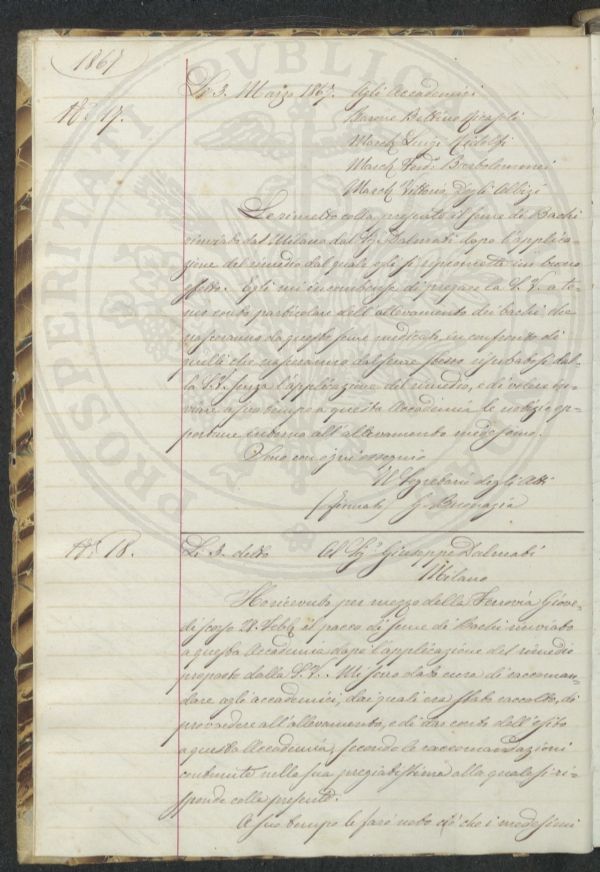 1867
PUBLICA
PROSPERITATI
N.° 17.
Li 3. Marzo 1867. Agli Accademici
Barone Bettino Ricasoli
March. Luigi Ridolfi
March. Ferd.° Bartolommei
March. Vittorio degli Albizi
Le rimetto colla presente il seme di Bachi
rinviato da Milano dal Sig. Dalmati dopo l'applica-
zione del rimedio dal quale egli si ripromette un buono
effetto. Egli mi incombensa di pregare la S. V. a te-
ner conto particolare dell'allevamento dei bachi, che
nasceranno da questo seme medicato, in confronto di
quelli che nasceranno dal seme stesso
la S. V. senza l'applicazione del rimedio, e di volere in-
viare a suo tempo a questa Accademia le notizie op-
portune intorno all'allevamento medesimo.
Sono con ogni ossequio
Il Segretario degli Atti
(firmato) G. Buonazia
N.° 18.
Li 3. detto Al Sig.r Giuseppe Dalmati
Milano
Ho ricevuto per mezzo della Ferrovia Giove-
dì scorso 28. Febb.° il pacco di seme di Bachi inviato
a questa Accademia dopo l'applicazione del rimedio
proposto dalla S. V. Mi sono dato cura di raccoman-
dare agli accademici, dai quali era stato raccolto, di
provvedere all'allevamento, e di dar conto dell'esito
a questa Accademia, secondo le raccomandazioni
contenute nella sua pregiatissima alla quale si ri-
sponde colla presente.
A suo tempo le farò noto ciò che i medesimi